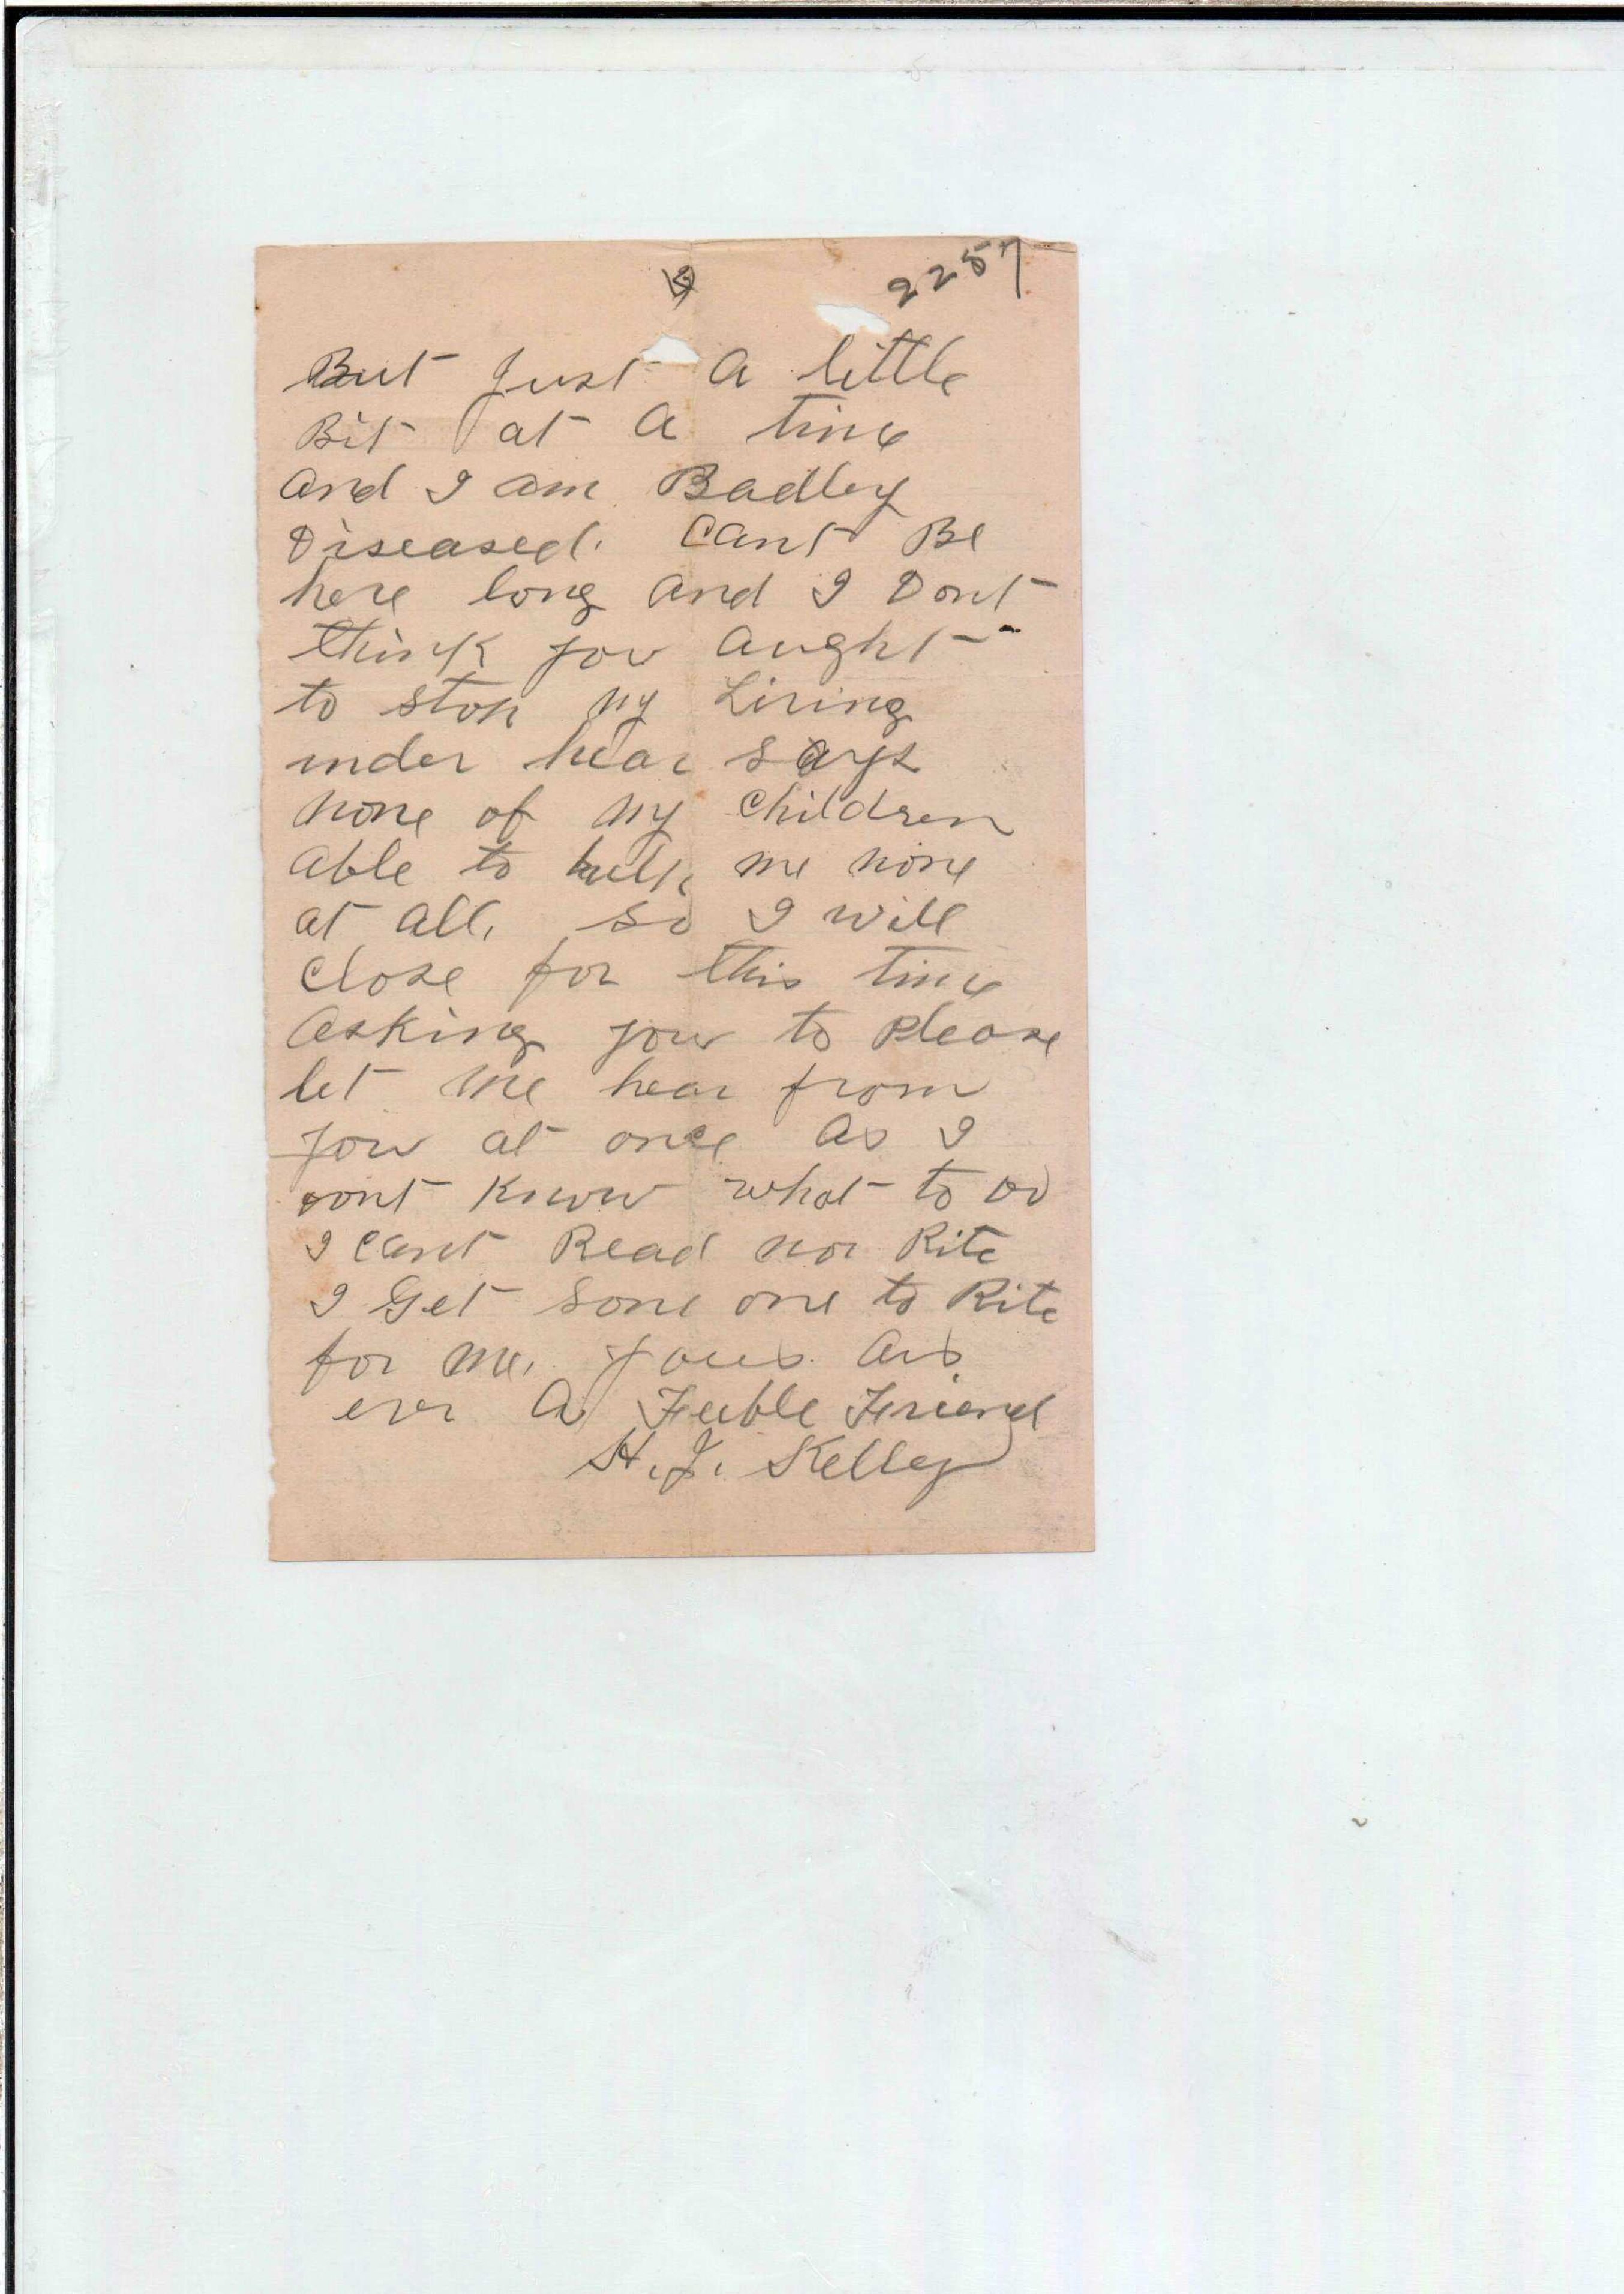 2257
But Just a little
Bit at a time
and I am Badley
Diseased. Cant Be
here long and I Dont
think you aught
to stop my Living
under hear says
none of my children
able to help me none
at all, so I will
close for this time
asking you to Please
let me hear from
you at once as I
dont know what to do
I cant Read nor Rite
I Get some one to Rite
for me. yours as
ever a Feeble Friend
H.J. Kelley